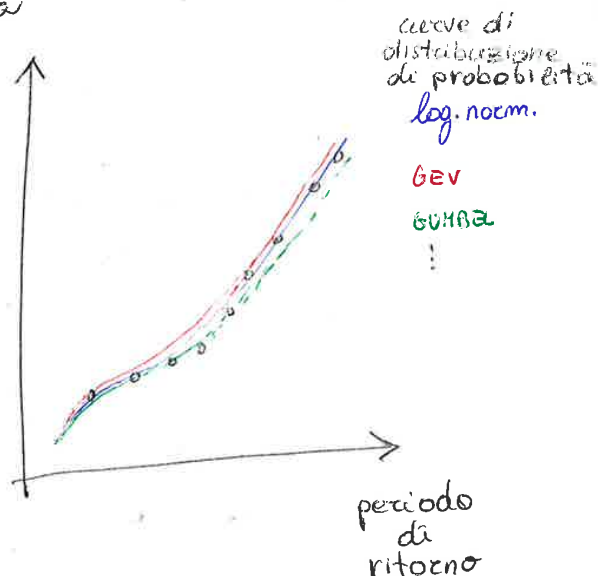 curve di
distribuzione
di probabilità
log. norm.
GEV
GUMBEL
⋮
periodo
di
ritorno